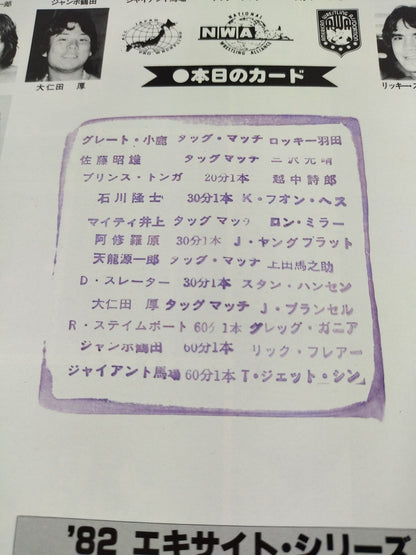 ジャンボ鶴田
大仁田 厚
ALL JAPAN PRO WRESTLING
NATIONAL
NWA
WRESTLING ALLIANCE
AWA
リッキー・ス
●本日のカード
グレート・小鹿 タッグ・マッチ ロッキー羽田
佐藤昭雄 タッグマッチ 三沢光晴
プリンス・トンガ 20分1本 越中詩郎
石川隆士 30分1本 K・フオン・ヘス
マイティ井上 タッグマッ ロン・ミラー
阿修羅原 30分1本 J・ヤングブラット
天龍源一郎 タッグ・マッチ 上田馬之助
D・スレーター 30分1本 スタン・ハンセン
大仁田 厚 タッグマッチ J・ブランゼル
R・ステイムボート 60分1本 グレッグ・ガニア
ジャンボ鶴田 60分1本 リック・フレアー
ジャイアント馬場 60分1本 T・ジェット・シン
'82 エキサイト・シリーズ